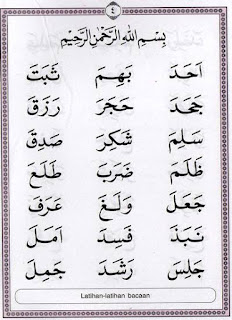 ٤
بِسْمِ اللهِ الرَّحْمٰنِ الرَّحِيْمِ
اَحَدَ بَهِمَ ثَبَتَ
جَحَدَ حَجَرَ رَزَقَ
سَلِمَ شَكَرَ صَدِقَ
ظَلَمَ ضَرَبَ طَلَعَ
جَعَلَ وَلَغَ عَرَفَ
نَبَذَ فَسِدَ اَمَلَ
جَلِسَ رَشَدَ جَمِلَ
Latihan-latihan bacaan